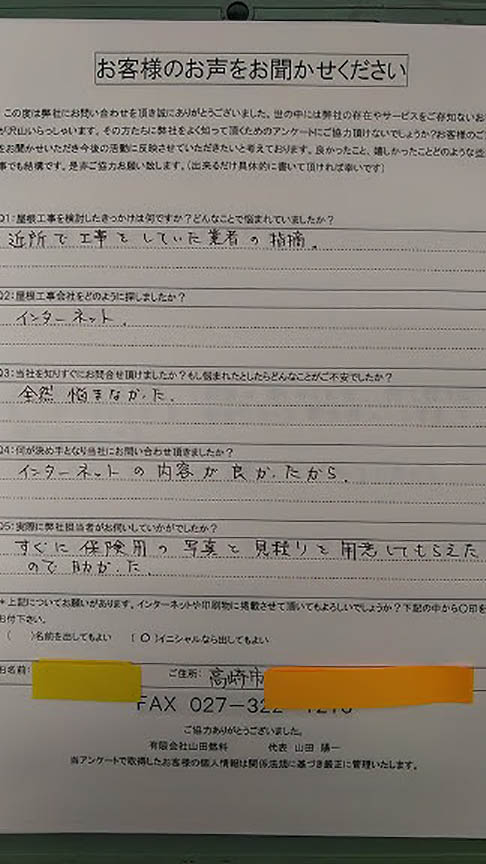 お客様のお声をお聞かせください
この度は弊社にお問い合わせを頂き誠にありがとうございました。世の中には弊社の存在やサービスをご存知ないお
が沢山いらっしゃいます。その方たちに弊社をよく知って頂くためのアンケートにご協力頂けないでしょうか?お客様のご
をお聞かせいただき今後の活動に反映させていただきたいと考えております。良かったこと、嬉しかったことどのような些
事でも結構です。是非ご協力お願い致します。(出来るだけ具体的に書いて頂ければ幸いです)
Q1:屋根工事を検討したきっかけは何ですか?どんなことで悩まれていましたか?
近所で工事をしていた業者の指摘。
Q2:屋根工事会社をどのように探しましたか?
インターネット。
Q3:当社を知りすぐにお問合せ頂けましたか?もし悩まれたとしたらどんなことがご不安でしたか?
全然悩まなかった。
Q4:何が決め手となり当社にお問い合わせ頂きましたか?
インターネットの内容が良かったから。
Q5:実際に弊社担当者がお伺いしていかがでしたか?
すぐに保険用の写真と見積りを用意してもらえた
ので助かった。
*上記についてお願いがあります。インターネットや印刷物に掲載させて頂いてもよろしいでしょうか?下記の中から〇印を
お付下さい。
( )名前を出してもよい (〇)イニシャルなら出してもよい
お名前: ご住所: 高崎市
FAX 027-322
ご協力ありがとうございました。
有限会社山田燃料 代表 山田 陽一
当アンケートで取得したお客様の個人情報は関係法規に基づき厳正に管理いたします。